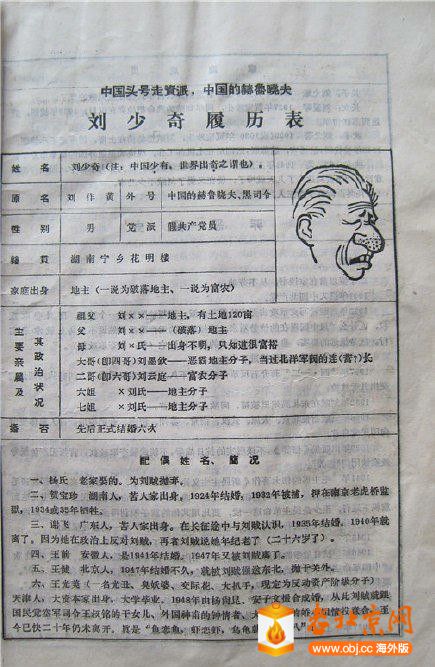 中国头号走資派，中国的赫魯曉夫
刘少奇履历表
姓名 刘少奇（注：中国少有、世界出奇之谓也）。
原名 刘作黄 外号 中国的赫鲁晓夫、黑司令
性别 男 党派 假共产党员
籍貫 湖南宁乡花明楼
家庭出身 地主（一说为破落地主、一说为富农）
主要亲属及其政治状况
祖父 刘××——地主，有土地120亩
父 刘××——（破落）地主
母 刘×氏——出身不明，只知道很富裕
大哥（即四哥）刘墨欽——恶霸地主分子，当过北洋军阀的连（营？）长
二哥（即六哥）刘云庭——富农分子
六姐 ×刘氏——地主分子
七姐 ×刘氏——地主分子
婚否 先后正式结婚六次
配偶姓名、簡况
一、杨氏 老家娶的。为刘贼抛弃。
二、贺宝珍 湖南人，苦人家出身。1924年结婚，1932年被捕，押在南京老虎桥监
狱，1934或35年牺牲。
三、谢飞 广东人，苦人家出身。在长征途中与刘贼认识，1935年结婚，1940年就
离了。因为她在政治上反对刘贼，再者刘贼说她年纪老了（二十六岁了）
四、王前 安徽人，是1941年结婚，1947年又被刘贼离了。
五、王健 北京人，1947年结婚不久，就被刘贼强送东北，抛于关外。
六、王光英（一名光业、臭妖婆、交际花、大扒手，现定为反动资产阶级分子）
天津人，大资本家出身，大学毕业。1948年由杨尚昆、安子文撮合成婚，从此刘贼就跟
国民党宪军司令王叔铭的干女儿、外国神甫的钟情者、
今已快二十年仍未离开，真是“鱼恋鱼，虾恋虾，乌龟
春秋京网
www.objc.cc 海外版